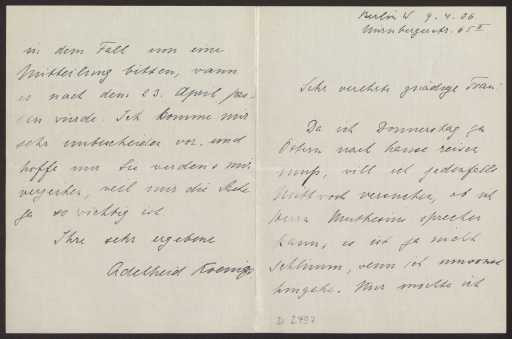 Berlin W 9.4.06
Nürnbergerstr. 65 II
Sehr verehrte gnädige Frau
Da ich Donnerstag zu
Ostern nach Hause reisen
muß, will ich jedenfalls
Mittwoch versuchen, ob ich
Herrn Muthesius sprechen
kann, es ist ja nicht
schlimm, wenn ich umsonst
hingehe. Nur möchte ich
in dem Fall um eine
Mitteilung bitten, wann
es nach dem 23. April pas-
sen würde. Ich komme mir
sehr unbescheiden vor und
hoffe nur Sie werden's mir
verzeihen, weil mir die Sache
ja so wichtig ist
Ihre sehr ergebene
Adelheid Koenigs
D 2497